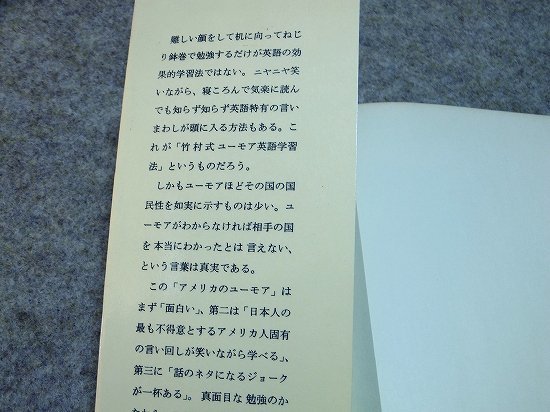 難しい顔をして机に向ってねじ
り鉢巻で勉強するだけが英語の効
果的学習法ではない。ニヤニヤ笑
いながら、寝ころんで気楽に読ん
でも知らず知らず英語特有の言い
まわしが頭に入る方法もある。こ
れが「竹村式ユーモア英語学習
法」というものだろう。
しかもユーモアほどその国の国
民性を如実に示すものは少い。ユ
ーモアがわからなければ相手の国
を本当にわかったとは言えない、
という言葉は真実である。
この「アメリカのユーモア」は
まず「面白い」、第二は「日本人の
最も不得意とするアメリカ人固有
の言い回しが笑いながら学べる」、
第三に「話のネタになるジョーク
が一杯ある」。真面目な勉強のか